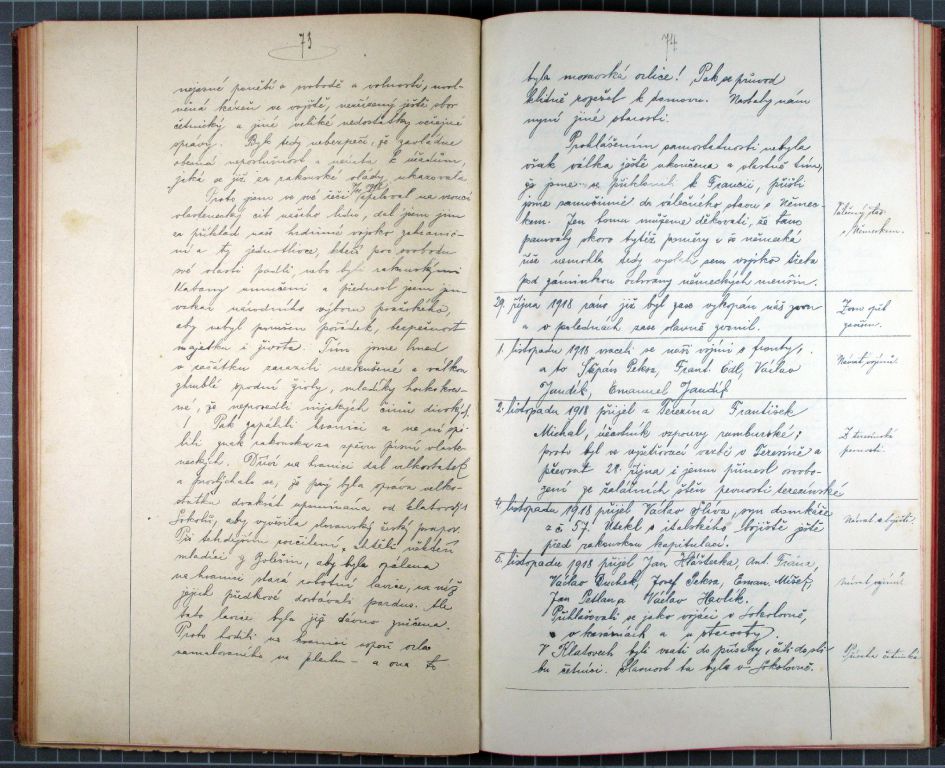 73
nejasné ponětí o svobodě a volnosti, uvol-
něná kázeň ve vojště, nezřízený ještě sbor
četnický a jiné veliké nedostatky veřejné
správy. Byl tedy nebezpečí, že zavládne
obecná neposlušnost a neúcta k úřadům,
jaká se již za rakouské vlády ukazovala
Proto jsem ve své řeči apeloval na vroucí
vlastenecký cit našeho lidu, dal jsem jim
za příklad naše hrdinné vojsko zahranič-
ní a ty jednotlivce, kteří pro svobodu
své vlasti padli nebo byli rakouskými
klabany umučeni a přednesl jsem jim
vzkaz národního výboru pražského,
aby nebyl porušen pořádek, bezpečnost
majetku i života. Tím jsme hned
v začátku zarazili nezkušené a válkou
zhrublé spodní živly, mladíky horkokrev-
né, že neprovedli nijakých činů divokých.
Pak zapálili hranici a na ní spá-
lili znak rakouska za zpěvu písní vlaste-
neckých. Dříví na hranici dal velkostatek
a proslýchalo se, že prý byla správa velko-
statku dvakrát upomínána od klatovských
Sokolů, aby vyvěsila slovanský český prapor.
Při tehdejším rozčilení, chtěli někteří
mladíci z Bolešin, aby byla spálena
na hranici stará robotní lavice, na níž
jejich předkové dostávali pardus. Ale
tato lavice byla již dávno zničena.
Proto hodili na hranici aspoň orla
namalovaného na plechu – a ona to
74
byla moravská orlice! Pak se průvod
klidně rozešel k domovu. Nastaly nám
nyní jiné starosti.
Prohlášením samostatnosti nebyla
však válka ještě ukončena a vlastně tím,
že jsme se přiklonili k Francii, přišli
jsme samočinně do válečného stavu s Němec-
kem. Jen tomu můžeme děkovati, že tam
panovaly skoro tytéž poměry a že německá
říše nemohla tedy vyslati sem vojsko třeba
pod záminkou ochrany německých menšin.
Válečný stav
s Německem.
29. října 1918 ráno již byl zase vykopán náš zvon
a v poledne zase slavně zvonil.
Zvon opět
zvoní.
1. listopadu 1918 vraceli se naši vojíni s fronty,
a to Štěpán Peksa, Frant. Edl, Václav
Jandík, Emanuel Jandík
Návrat vojínů.
2. listopadu 1918 přijel z Terezína František
Michal, účastník vzpoury rumburské;
proto byl ve vyšetřovací vazbě v Terezíně a
převrat 28. října i jemu přinesl osvobo-
zení ze žalářních stěn pevnosti terezínské
Z terezínské
pevnosti.
4. listopadu 1918 přijel Václav Slíva, syn domkáře
z č. 57. Utekl s italského bojiště ještě
před rakouskou kapitulací.
Návrat z bojiště.
5. listopadu 1918 přijel Jan Hlůšteka, Ant. Frána,
Václav Duchek, Josef Peksa, Eman. Mišek,
Jan Petlan a Václav Havlík.
Přihlašovali se jako vojáci v Sokolovně,
v kasárnách a u starosty.
Návrat vojínů.
V Klatovech byli vzati do přísahy, čili do sli-
bu četníci. Slavnost ta byla v Sokolovně.
Přísaha četníků.